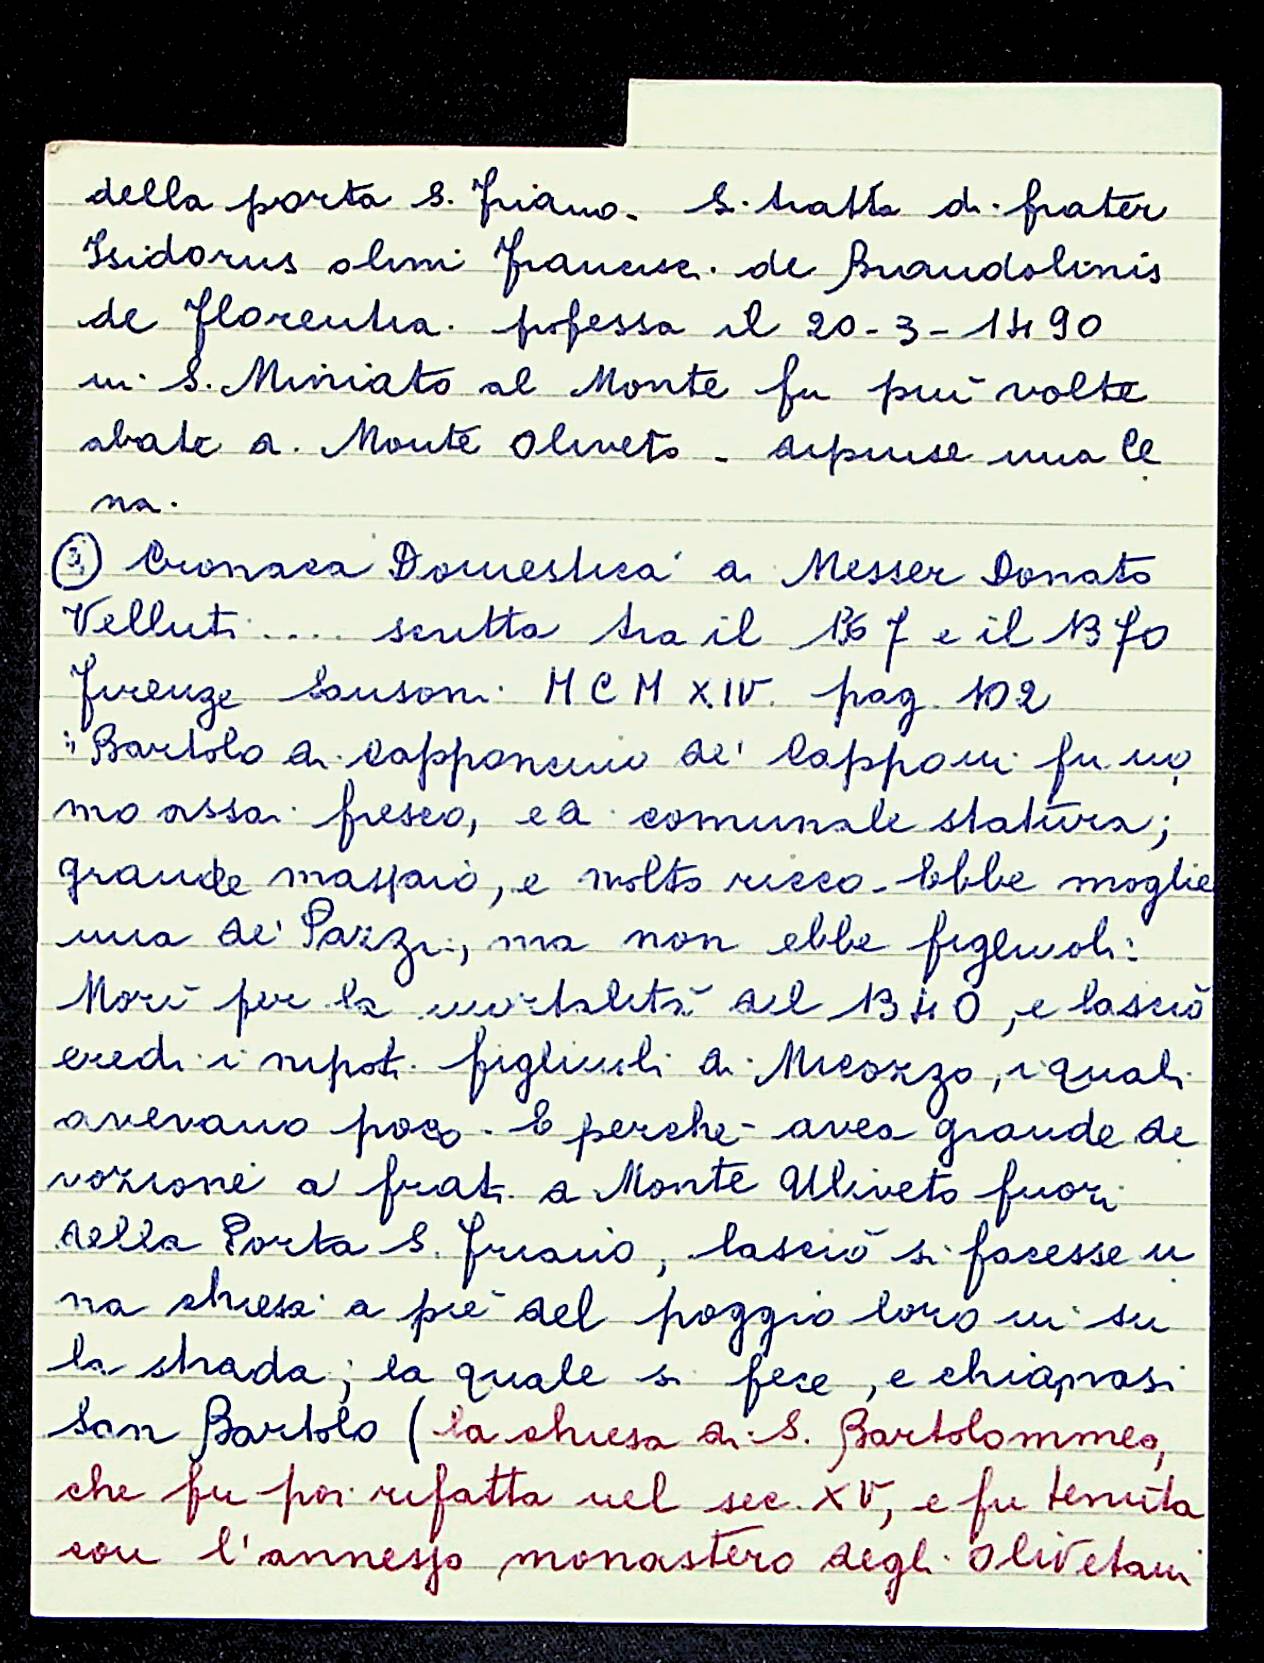 della porta S. Friano. Si tratta di frater
Isidorus olim Francisci de Brandolinis
de Florentia. professa il 20-3-1490
in S. Miniato al Monte fu più volte
abate a Monte Oliveto - dipinse una Ce
na.
③ Cronaca Domestica di Messer Donato
Velluti .... scritta tra il 1367 e il 1370
Firenze Sansoni MCMXIV. pag. 102
"Bartolo di Capponcino de' Capponi fu uo
mo assai fresco, e di comunale statura;
grande massaio, e molto ricco. Ebbe moglie
una de' Pazzi, ma non ebbe figliuoli:
Morì per la mortalità del 1340, e lasciò
eredi i nipoti figliuoli di Micozzo, i quali
avevano poco. E perchè avea grande de
vozione a' frati a Monte Uliveto fuori
della Porta S. Friano, lasciò si facesse u
na chiesa a piè del poggio loro in su
la strada; la quale si fece, e chiamasi
San Bartolo (la chiesa di S. Bartolommeo,
che fu poi rifatta nel sec. XV, e fu tenuta
con l'annesso monastero degli Olivetani